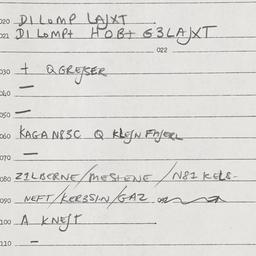 020 DILOMP LAJXT
021 DILOMPT HOBT G3LAJXT
022
030 + QGREJSER
040 —
050 —
060 KAGAN83C Q KLEJN FAJERL
—
070
080 21LBERNE/MESTENE/N81KEL8-
090 NEFT/KER8S1N/GAZ
100 A KNEJT
110 —